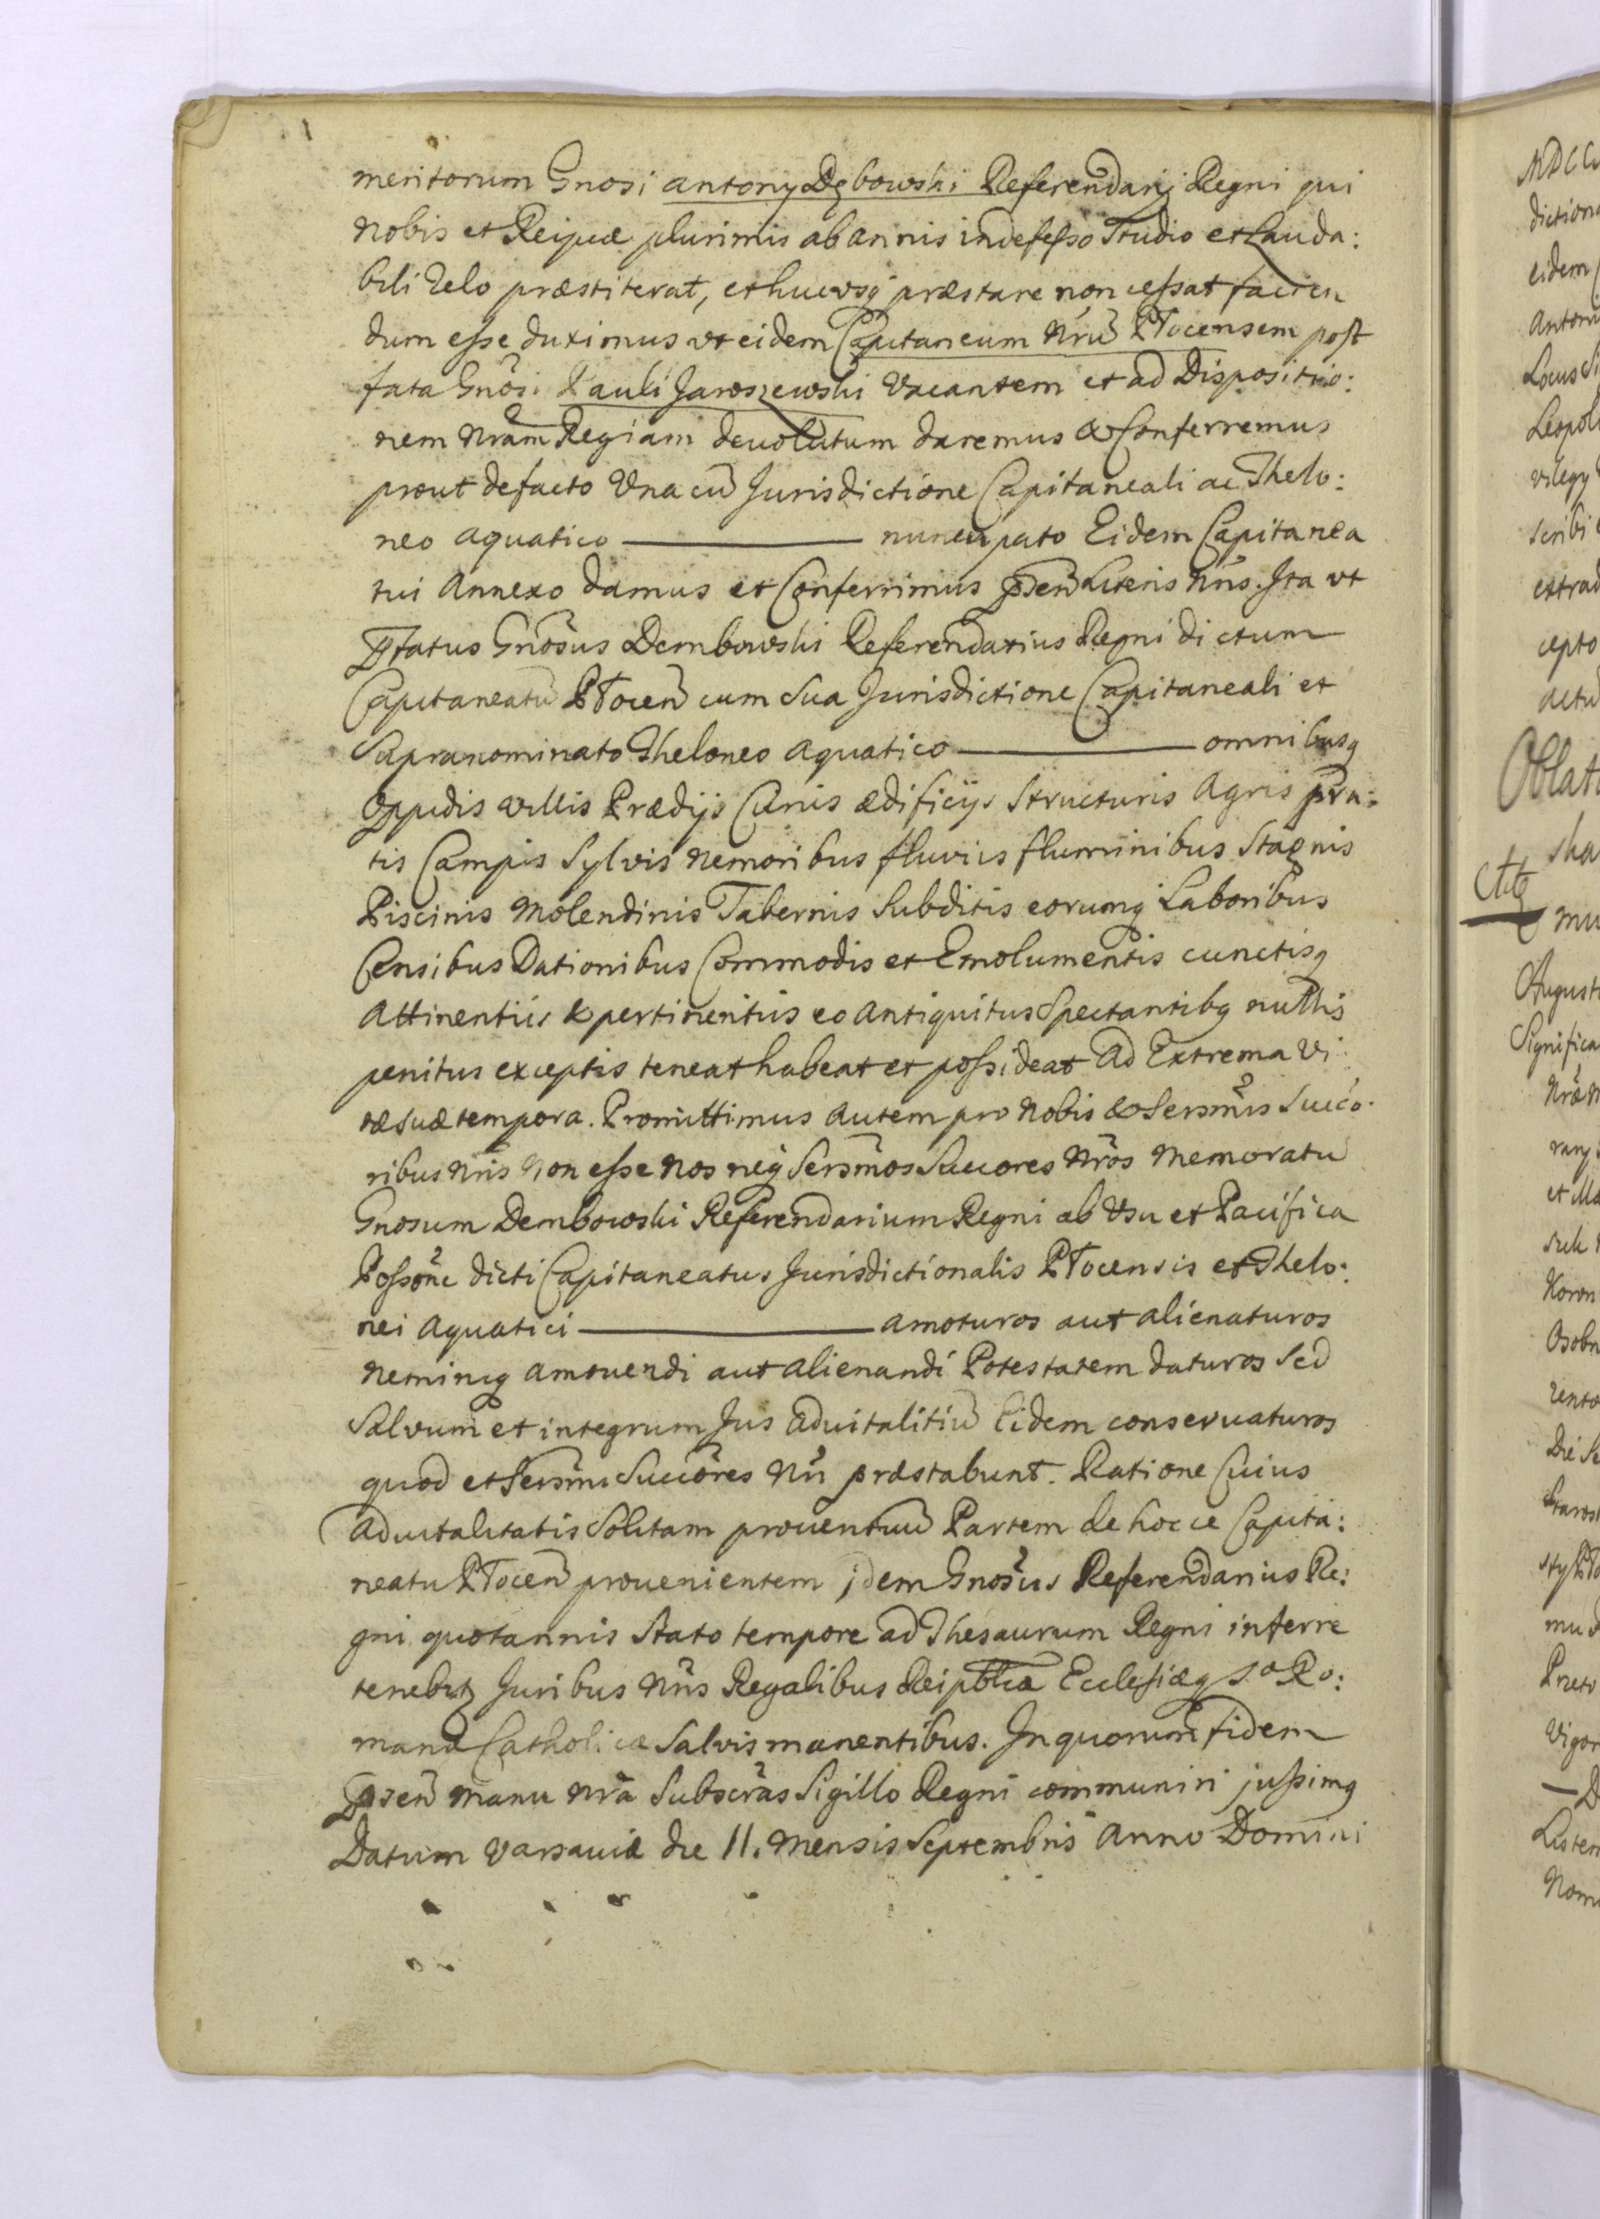 meritorum Gnosi antony Dębowski Referendarij Regni qui
Nobis et Reipuæ plurimis ab annis indefesso Studio et Lauda:
bili Zelo præstiterat, et hucusq præstare non cessat facien
dum esse duximus ut eidem Capitaneum Nrũ Płocensem post
fata Gnõsi Pauli Jaroszewski Vacantem et ad Dispositio:
nem Nrãm Regiam devolutum daremus & Conferremus
prout defacto Vna cũ Jurisdictione Capitaneali ac Thelo:
neo aquatico ——— nuncupato Eidem Capitanea
tui Annexo damus et Conferrimus pñsen Literis Nris. Ita ut
Pftatus Gnõsus Dembowski Referendarius Regni dictum
Capitaneatũ Płoceñ cum Sua Jurisdictione Capitaneali et
Supranominato Theloneo aquatico ——— omnibusq
Oppidis villis Prædijs Curiis ædificijs Structuris Agris pra:
tis Campis Sylvis Nemoribus fluviis fluminibus Stagnis
Piscinis Molendinis Tabernis Subditis eorumq Laboribus
Censibus Dationibus Commodis et Emolumentis cunctisq
Attinentiis & pertinentiis eo Antiquitus Spectantibq nullis
penitus exceptis teneat habeat et possideat Ad Extrema Vi:
tæ suæ tempora. Promittimus Autem pro Nobis & Sersmis Succo:
ribus Nris Non esse Nos neq Sersmos Succores Nros Memoratũ
Gnosum Dembowski Referendarium Regni ab Usu et Pacifica
Possõne dicti Capitaneatus Jurisdictionalis Płocensis et Thelo:
nei Aquatici ——— amoturos aut alienaturos
Neminiq amovendi aut alienandi Potestatem daturos Sed
Salvum et integrum Jus advitalitiũ Eidem conservaturos
quod et Sersmi Succõres Nri præstabunt. Ratione Cuius
Advitalitatis Solitam proventuũ Partem de hocce Capita:
neatu Płoceñ provenientem idem Gnosus Referendarius Re:
gni quotannis Stato tempore ad Thesaurum Regni inferre
tenebitz Juribus Nris Regalibus Reipblicæ Ecclesiæq S.æ Ro:
manæ Catholicæ Salvis manentibus. In quorum fidem
Pñseñ Manu Nrã Subscrãs Sigillo Regni communiri jussimq
Datum Varsaviæ die 11. Mensis Septembris Anno Domini